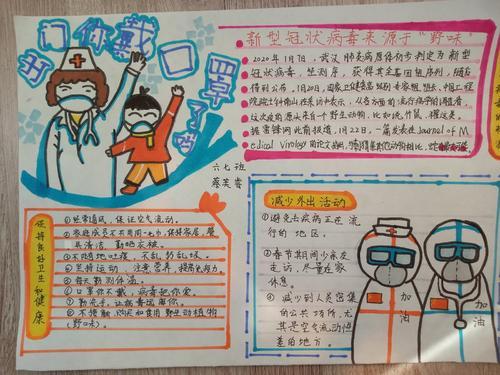 今日你戴口罩了吗
六七班
蔡芙蓉
新型冠状病毒来源于“野味”
2020年1月7日，武汉肺炎病原体初步判定为新型
冠状病毒，
获得其全基因组序列，随后
得到公布，1月20日，国家卫健委
组长，中国工程
院院士钟南山在
采访中表示，从各方面的流行病学的调查看，
这次疫的源头来自一个野生动物，比如说，竹鼠、獾这类。
1月22日，一篇发表在Journal of M
edical Virology
减少外出活动
①避免去疾病正在流
行的地区。
②春节期间少亲友
走访，尽量在家
休息。
③减少到人员密集
的公共场所，尤
其是空气流动性
差的地方。
加油
加油
保持良好卫生和健康
①经常通风，保证空气流动。
②家庭成员不共用毛巾，保持家居、餐
具清洁，勤晒衣被。
③不随地吐痰，不乱扔垃圾。
④坚持运动，注意营养，提高免疫力。
⑤每天勤测体温。
⑥口罩你不戴，病毒把你爱。
⑦勤洗手，让病毒远离你。
⑧不接触、购买和食用野生动植物
（野味）。